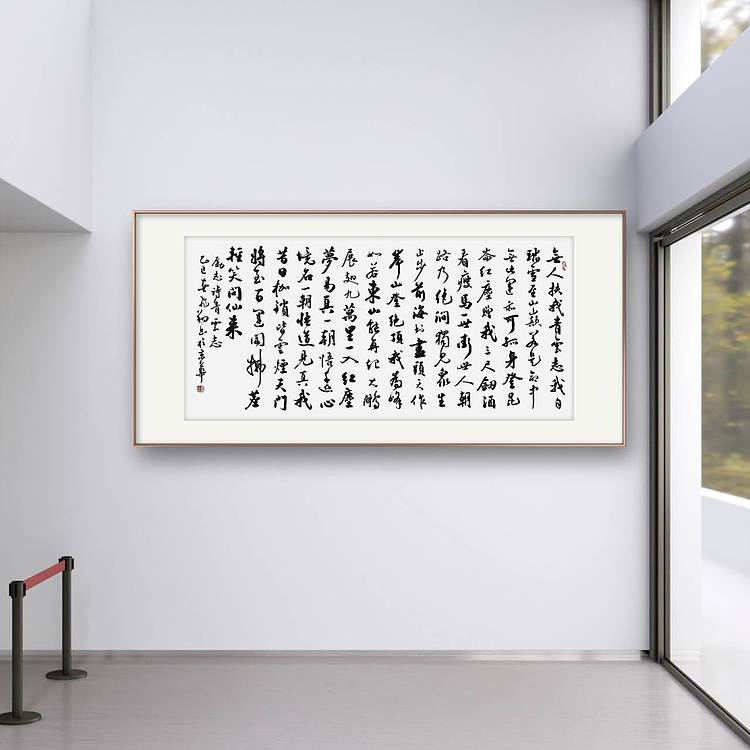 無人扶我青雲志我自
踏雪至山巔若是命中
無此運亦可孤身登昆
崙紅塵贈我三尺劍酒
看瘦馬一世世人朝
路乃絕澗獨見衆生
止步前海到盡頭天作
岸山登絕頂我為峰
如若東山能再起大鵬
展翅九萬里一入紅塵
夢易真一朝悟道心
境名一朝悟道見真我
昔日枷鎖皆雲煙天門
將至百運開拂塵
輕笑問仙萊
勵志詩青雲志
乙巳春於京華